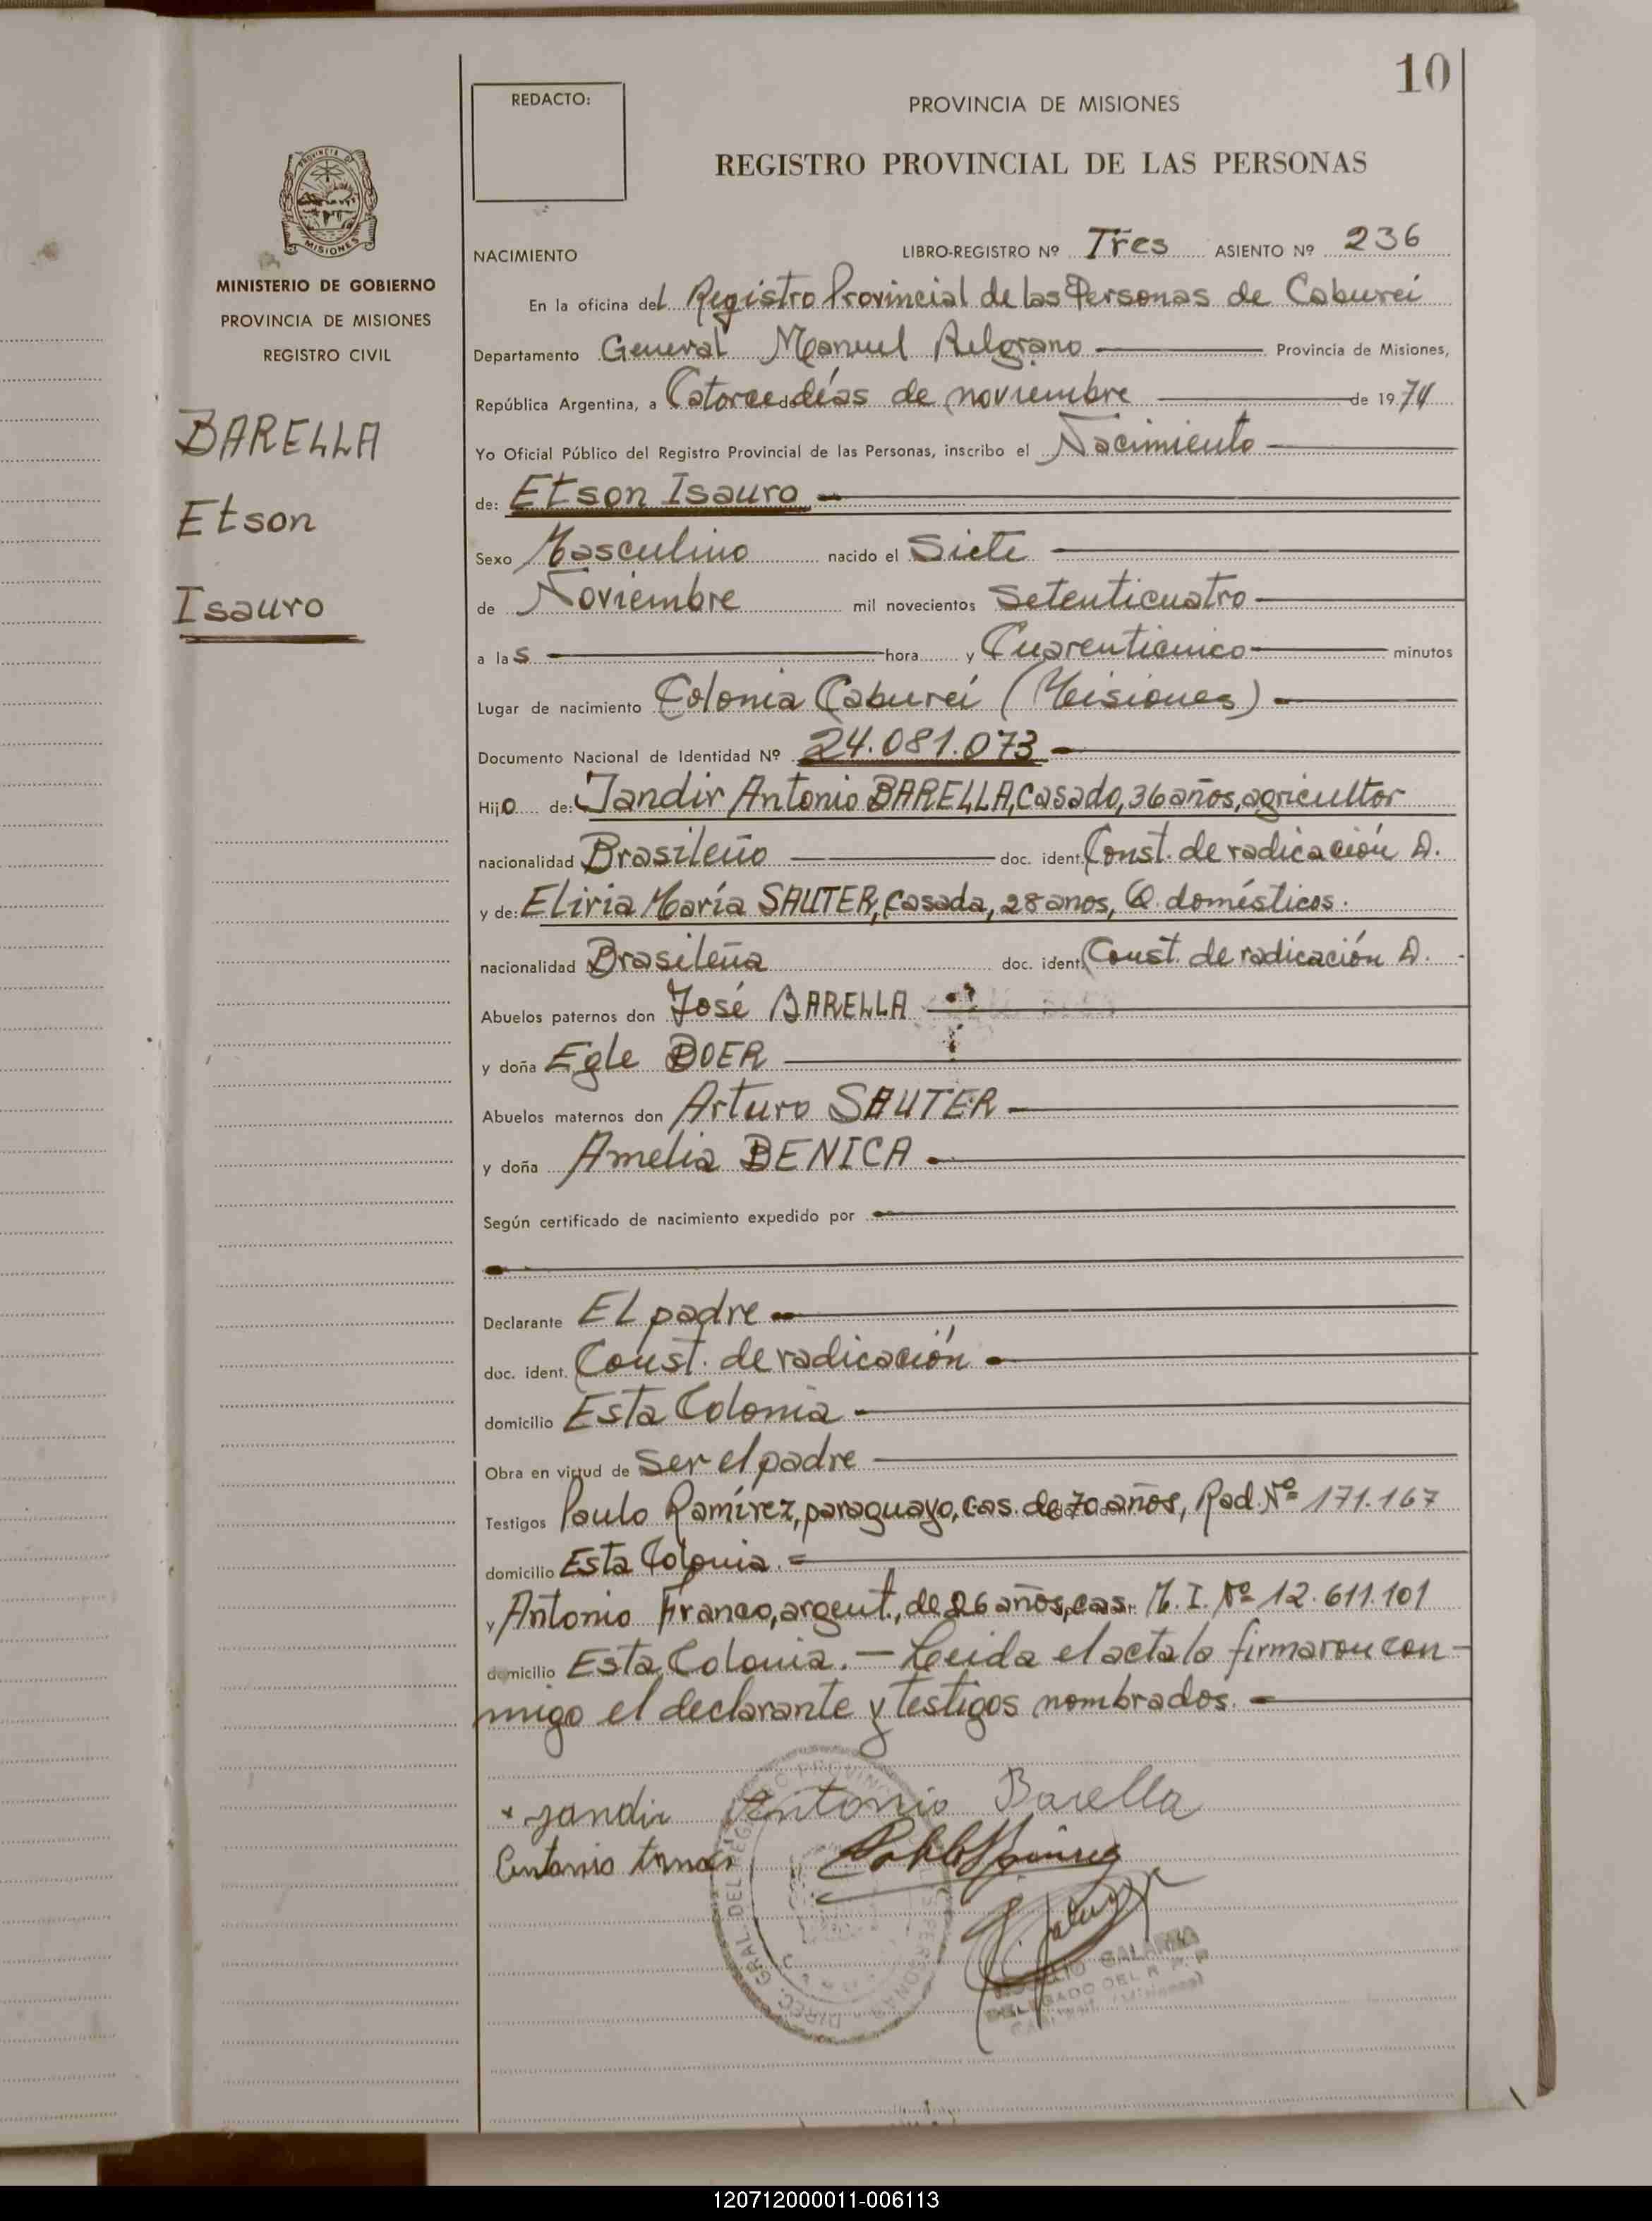 10
REDACTO:
PROVINCIA DE MISIONES
REGISTRO PROVINCIAL DE LAS PERSONAS
PROVINCIA DE
MISIONES
MINISTERIO DE GOBIERNO
PROVINCIA DE MISIONES
REGISTRO CIVIL
BARELLA
Etson
Isauro
NACIMIENTO LIBRO-REGISTRO Nº Tres ASIENTO Nº 236
En la oficina del Registro Provincial de las Personas de Caburei
Departamento General Manuel Belgrano Provincia de Misiones,
República Argentina, a Catorce días de noviembre de 1974
Yo Oficial Público del Registro Provincial de las Personas, inscribo el Nacimiento
de: Etson Isauro
Sexo Masculino nacido el Siete
de Noviembre mil novecientos Setenticuatro
a las hora y Cuarenticinco minutos
Lugar de nacimiento Colonia Caburei (Misiones)
Documento Nacional de Identidad Nº 24.081.073
Hijo de: Jandir Antonio BARELLA, Casado, 36 años, agricultor
nacionalidad Brasileño doc. ident. Const. de radicación D.
y de: Eliria María SAUTER, Casada, 28 anos, Q. domésticos.
nacionalidad Brasileña doc. ident. Const. de radicación D.
Abuelos paternos don José BARELLA
y doña Egle BOER
Abuelos maternos don Arturo SAUTER
y doña Amelia BENICA
Según certificado de nacimiento expedido por
Declarante El padre
doc. ident. Const. de radicación
domicilio Esta Colonia
Obra en virtud de Ser el padre
Testigos Paulo Ramírez, paraguayo, cas. de 70 años, Rad. Nº 171.167
domicilio Esta Colonia.
y Antonio Franco, argent., de 26 años, cas. M. I. Nº 12.611.101
domicilio Esta Colonia. — Leida el acta la firmaron con-
migo el declarante y testigos nombrados.
x Jandir Antonio Barella
DIREC. GRAL. DEL REGISTRO PROVINCIAL PERSONAS
GALARZA
DELEGADO DEL R. P. P.
(Misiones)
120712000011-006113